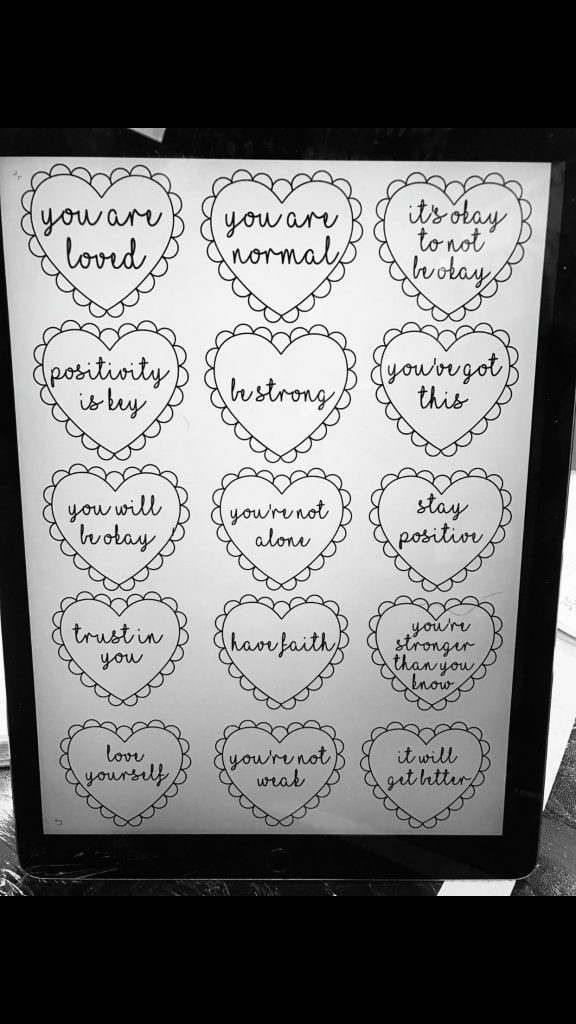 you are
loved
you are
normal
it's okay
to not
be okay
positivity
is key
be strong
you've got
this
you will
be okay
you're not
alone
stay
positive
trust in
you
have faith
you're
stronger
than you
know
love
yourself
you're not
weak
it will
get better